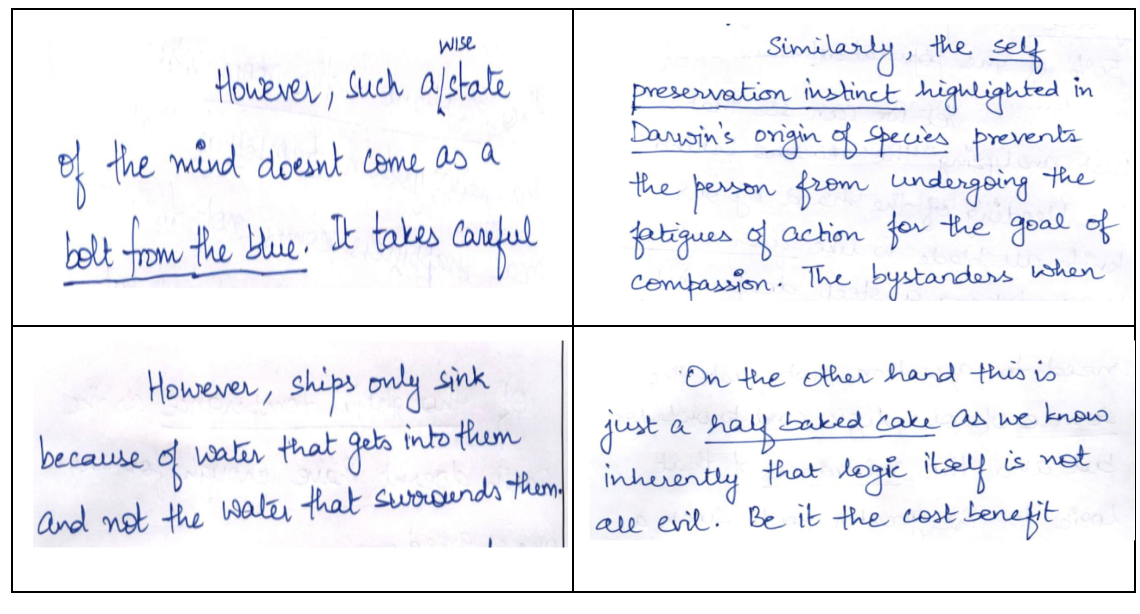 wise
However, such a/state
of the mind doesnt come as a
bolt from the blue. It takes careful
Similarly, the self
preservation instinct highlighted in
Darwin's origin of species prevents
the person from undergoing the
fatigues of action for the goal of
compassion. The bystanders when
However, ships only sink
because of water that gets into them
and not the water that surrounds them.
On the other hand this is
just a half baked cake as we know
inherently that logic itself is not
all evil. Be it the cost benefit